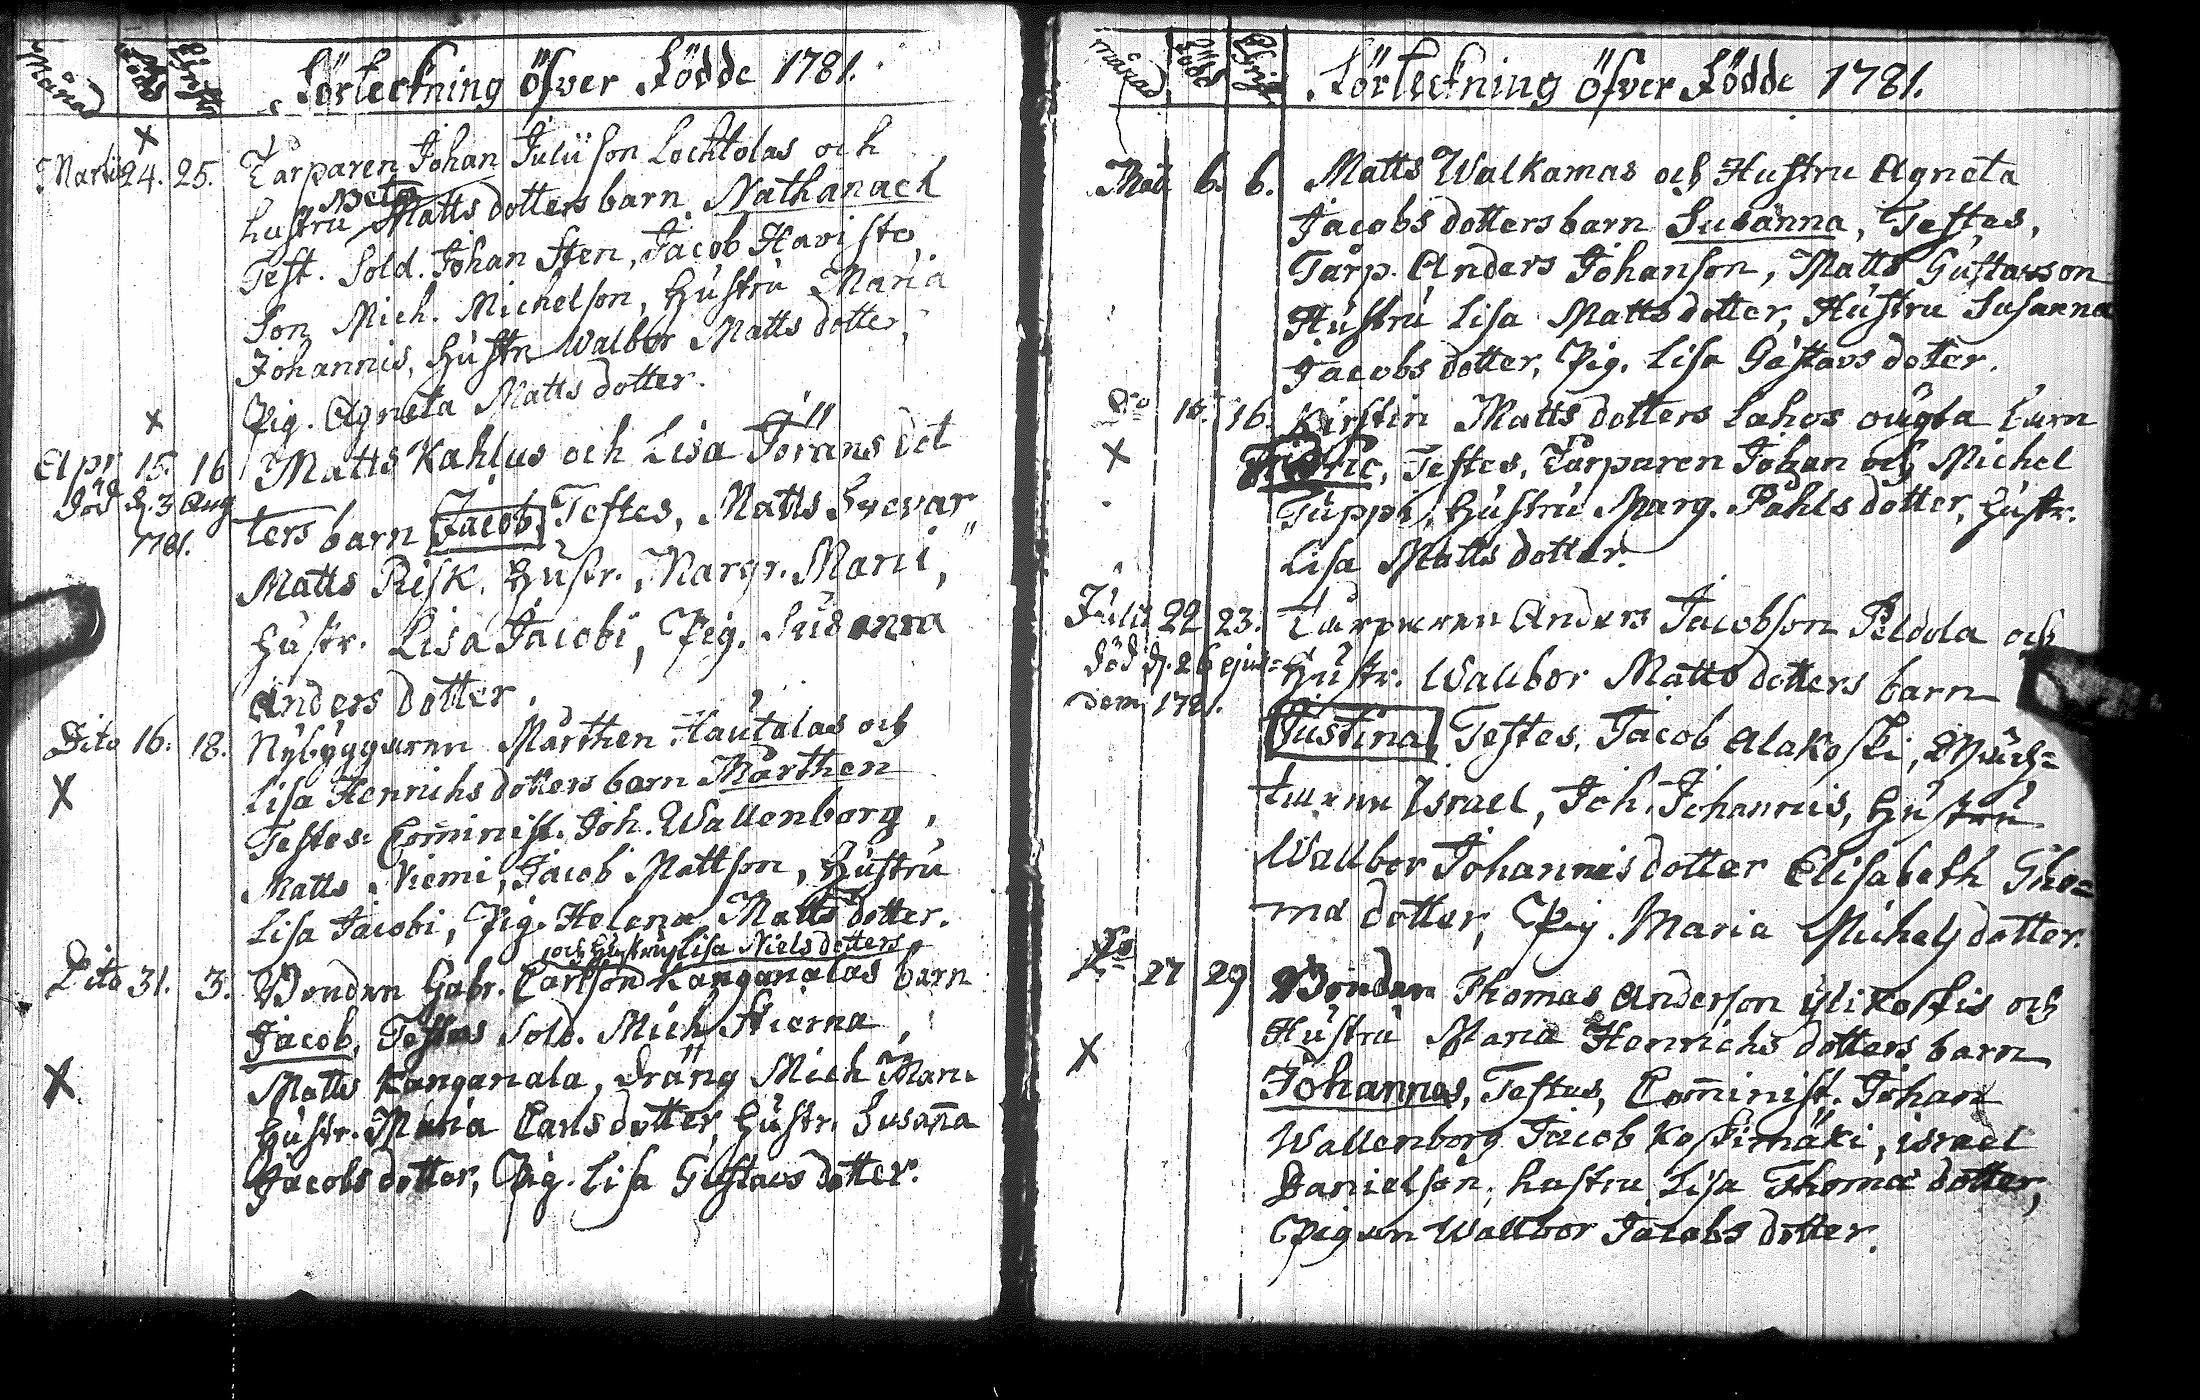 Månad
Född
Christn
Förteckning öfver Födde 1781.
Martii 24. 25. Torparen Johan Juliison Lochtolas och
hustru Beta Matts dotters barn Nathanael
Test. Sold. Johan Sten, Jacob Havisto
Son Mich. Michelson, Hustru Maria
Johannis, Hustr Walbor Matts dotter,
Pig. Agneta Matts dotter.
Apr. 15. 16 Matts Kahlus och Lisa Jöransdot
död d. 3 Aug
1781.
ters barn Jacob, Testes, Matts
Matts Risk. Hustr. Margr. Marci,
Hustr. Lisa Jacobi, Pig. Susanna
Anders dotter.
Dito 16. 18. Nybyggaren Mårthen Hautalas och
Lisa Henrichs dotters barn Mårthen
Testes: Com̄inist. Joh. Wallenborg,
Matts Niemi, Jacob Mattson, Hustru
Lisa Jacobi, Pig. Helena Matts dotter.
och Hustrus Lisa Niels dotters
Dito 31. 3. Bonden Gabr. Carlson Kanganalas barn
Jacob, Testes Sold. Mich Stierna,
Matts Kanganala, Dräng Mich
Hustr. Maria Carls dotter, Hustr. Susan̄a
Jacobs dotter, Pig. Lisa Gustavs dotter.
Månad
Född
Christn
Förteckning öfver Födde 1781.
Maii 6. 6. Matts Walkamas och Hustru Agneta
Jacobs dotters barn Susanna, Testes,
Torp. Anders Johanson, Matts Gustavson
Hustru Lisa Matts dotter, Hustru Susanna
Jacobs dotter, Pig. Lisa Gustavs doter.
Do 15. 16. Kirstin Matts dotters Lahos oägta barn
Fridric, Testes, Torparen Johan och Michel
Tuppi, Hustru Marg. Påhls dotter, Hustr.
Lisa Matts dotter.
Julii 22 23. Torparen Anders Jacobson Peldola och
död d. 26 ejus=
dem 1781.
Hustr. Wallbor Matts dotters barn
Justina, Testes, Jacob Alakoski,
Israel, Joh. Johannis, Hustru
Wallbor Johannis dotter Elisabeth Tho=
mæ dotter, Pig. Maria Michels dotter.
Do 27 29 Bonden Thomas Anderson Ylikoskis och
Hustru Maria Henrichs dotters barn
Johannes, Testes, Com̄inist. Johan
Wallenborg Jacob Koskimäki, Israel
Danielson, hustru Lisa Thomæ dotter,
Pigan Wallbor Jacobs dotter.